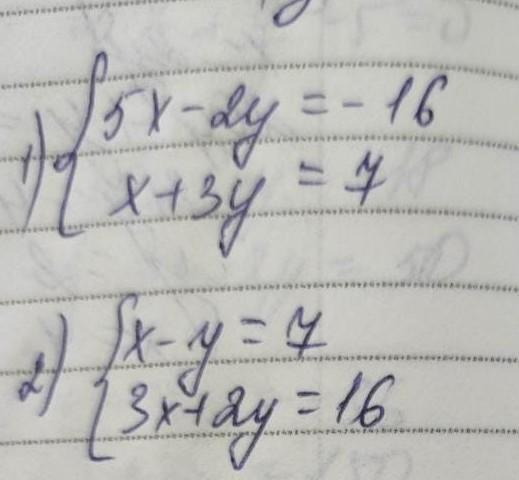 1) { 5x - 2y = - 16
x + 3y = 7
2) { x - y = 7
3x + 2y = 16